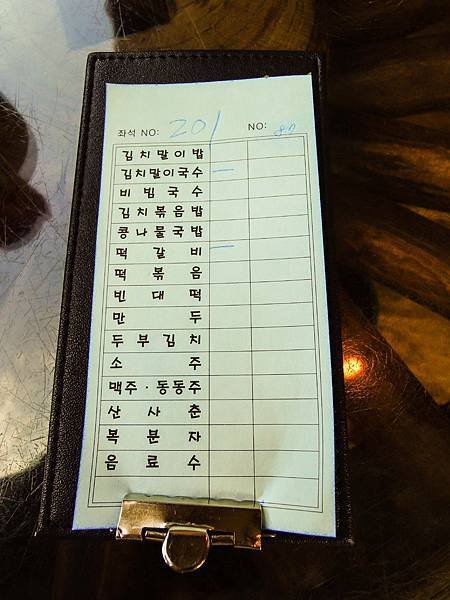 좌석 NO: 201 NO:
김치말이밥
김치말이국수 —
비빔국수
김치볶음밥
콩나물국밥
떡갈비 —
떡볶음
빈대떡
만두
두부김치
소주
맥주·동동주
산사춘
복분자
음료수